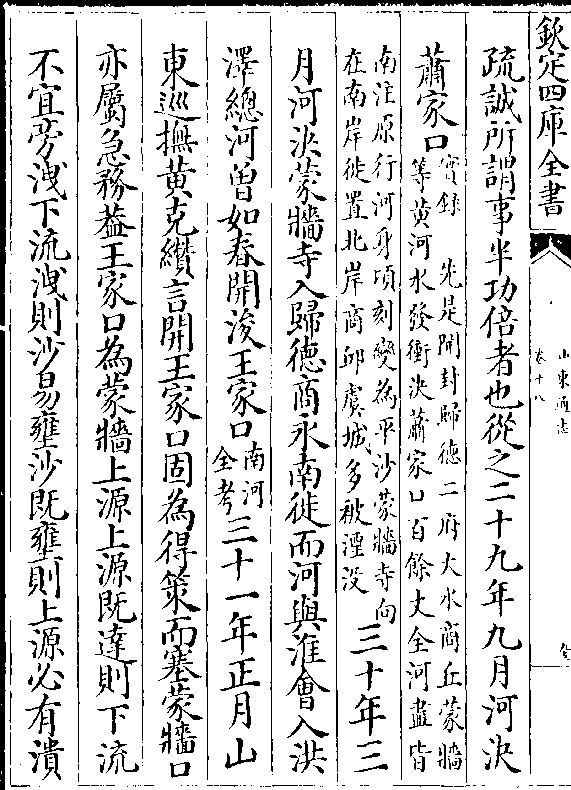 欽定四庫全書
山東通志
卷十八
疏誠所謂事半功倍者也從之二十九年九月河決
蕭家口
實錄　先是開封歸德二府大水商丘蒙牆
等黄河水發衝決蕭家口百餘丈全河盡皆
南注原行河身頃刻變為平沙蒙牆寺向
在南岸徙置北岸商邱虞城多被湮没
三十年三
月河決蒙牆寺入歸德商永南徙而河與淮會入洪
澤總河曽如春開浚王家口
南河
全考
三十一年正月山
東巡撫黄克纉言開王家口固為得策而塞蒙牆口
亦屬急務葢王家口為蒙牆上源上源既達則下流
不宜旁洩下流洩則沙易壅沙既壅則上源必有潰